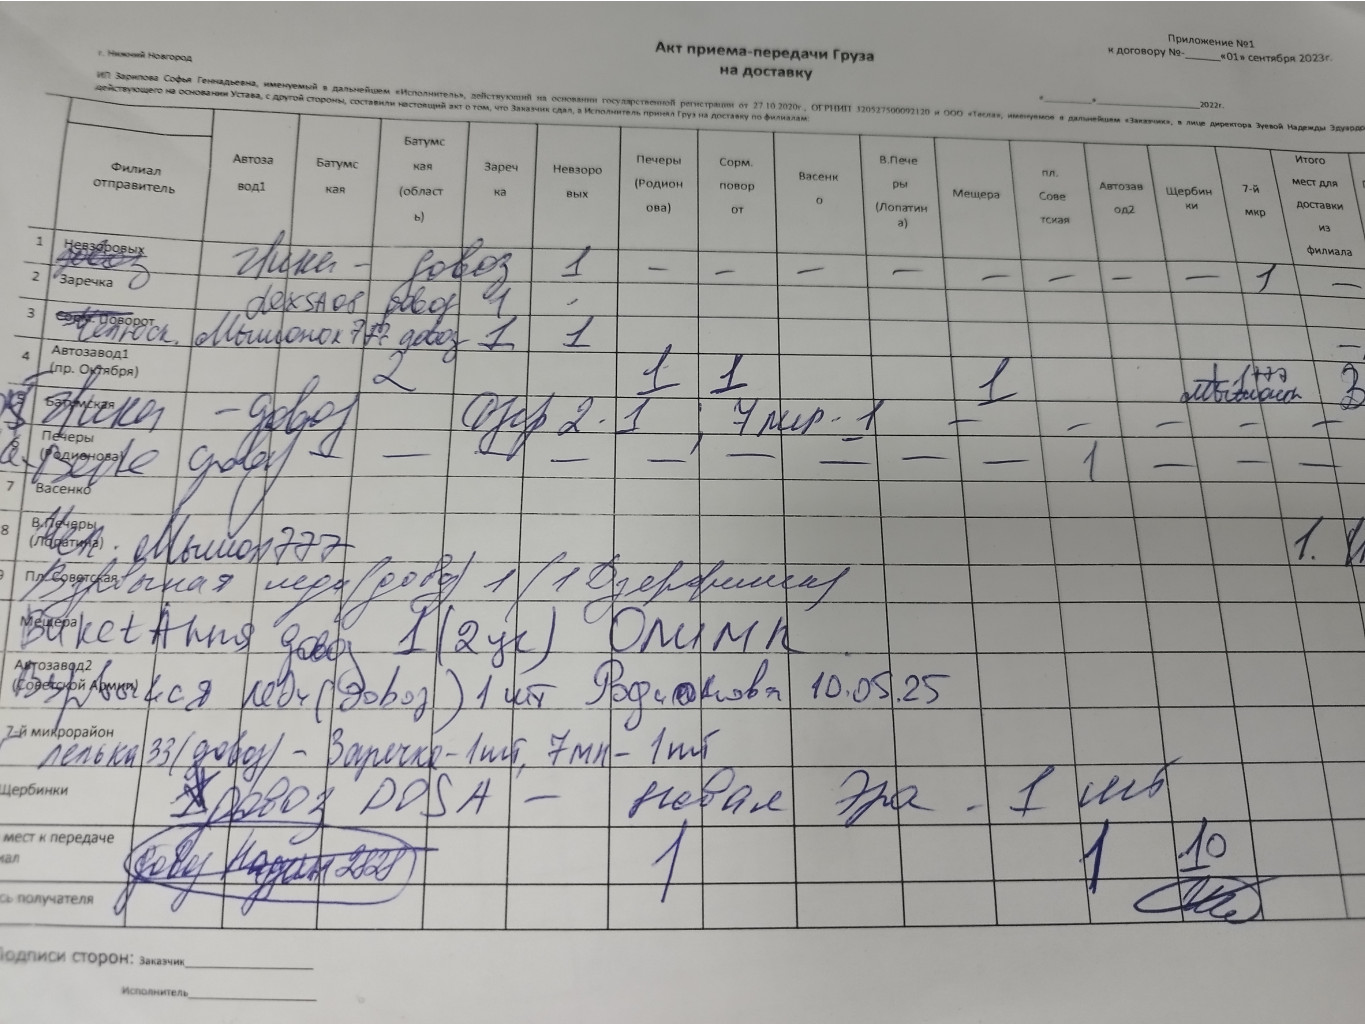 Приложение №1
г. Нижний Новгород
Акт приема-передачи Груза
к договору №-______«01» сентября 2023г.
на доставку
"__________"____________________2022г.
ИП Зарипова Софья Геннадьевна, именуемый в дальнейшем «Исполнитель», действующий на основании государственной регистрации от 27.10.2020г., ОГРНИП 320527500092120 и ООО «Теклак, именуемое в дальнейшем «Заказчик», в лице директора Зуевой Надежды Эдуардо
действующего на основании Устава, с другой стороны, составили настоящий акт о том, что Заказчик сдал, а Исполнитель принял Груз на доставку по филиалам:
Филиал отправитель Автоза вод1 Батумс кая Батумс кая (област ь) Зареч ка Невзоро вых Печеры (Родион ова) Сорм. повор от Васенк о В.Пече ры (Лопатин а) Мещера пл. Сове тская Автозав од2 Щербин ки 7-й мкр Итого мест для доставки из филиала
1 Невзоровых довоз 1 — — — — — — — — 1 —
2 Заречка довоз 1
3 Сорм. поворот Мышонок 777 довоз 1 1 —
4 Автозавод1 (пр. Октября) 2 1 1 1 777 3
5 Батумская - довоз 2 - 1 ; 7 мкр - 1 — — — — —
6 Печеры (Родионова) довоз — — — — — — — — 1 — — —
7 Васенко
8 В.Печеры (Лопатина) Мышонок 777 1.
9 Пл. Советская Взрывная леди (довоз) 1 (1 Дзержинск)
Мещера довоз 1 (2 ук) Олимп
Автозавод2 (Советской Армии) леди (довоз) 1 шт Родионова 10.05.25
7-й микрорайон лелька 33 (довоз) - Заречка - 1 шт, 7 мк - 1 шт
Щербинки довоз DOSA — новая Эра - 1 шт
мест к передаче
иал довоз 2828 1 1 10
сь получателя
Подписи сторон: Заказчик__________________
Исполнитель__________________